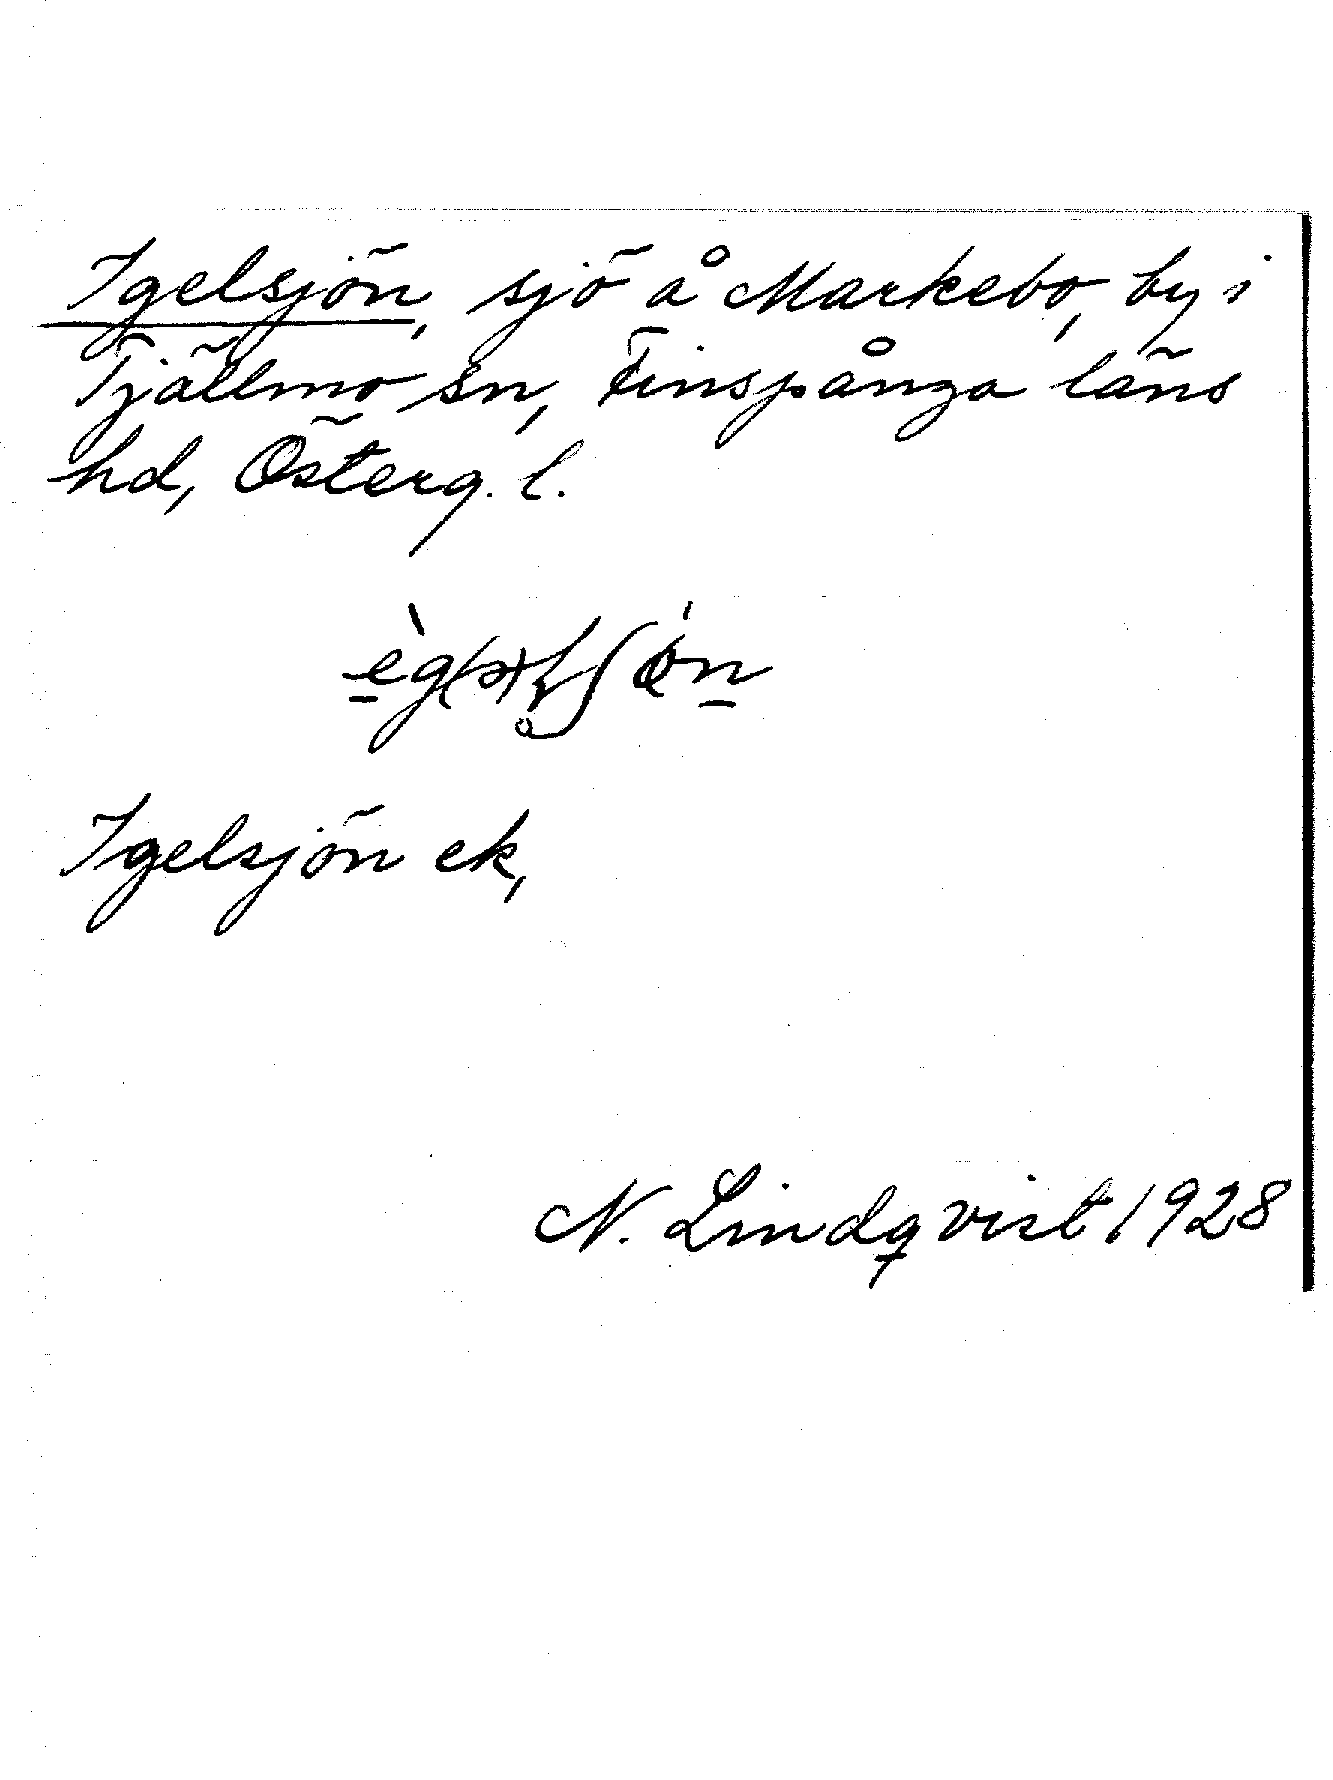 Igelsjön, sjö å Markebo, by i
Tjällmo sn, Finspånga läns
hd, Österg. l.
Igelsjön ek,
N. Lindqvist 1928